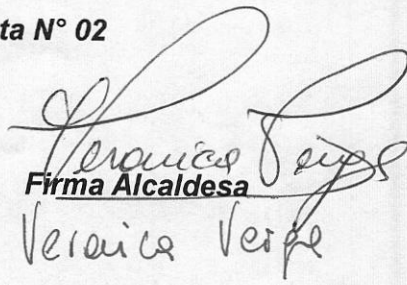 ta N° 02
Veronica Verga
Firma Alcaldesa
Veronica Verga